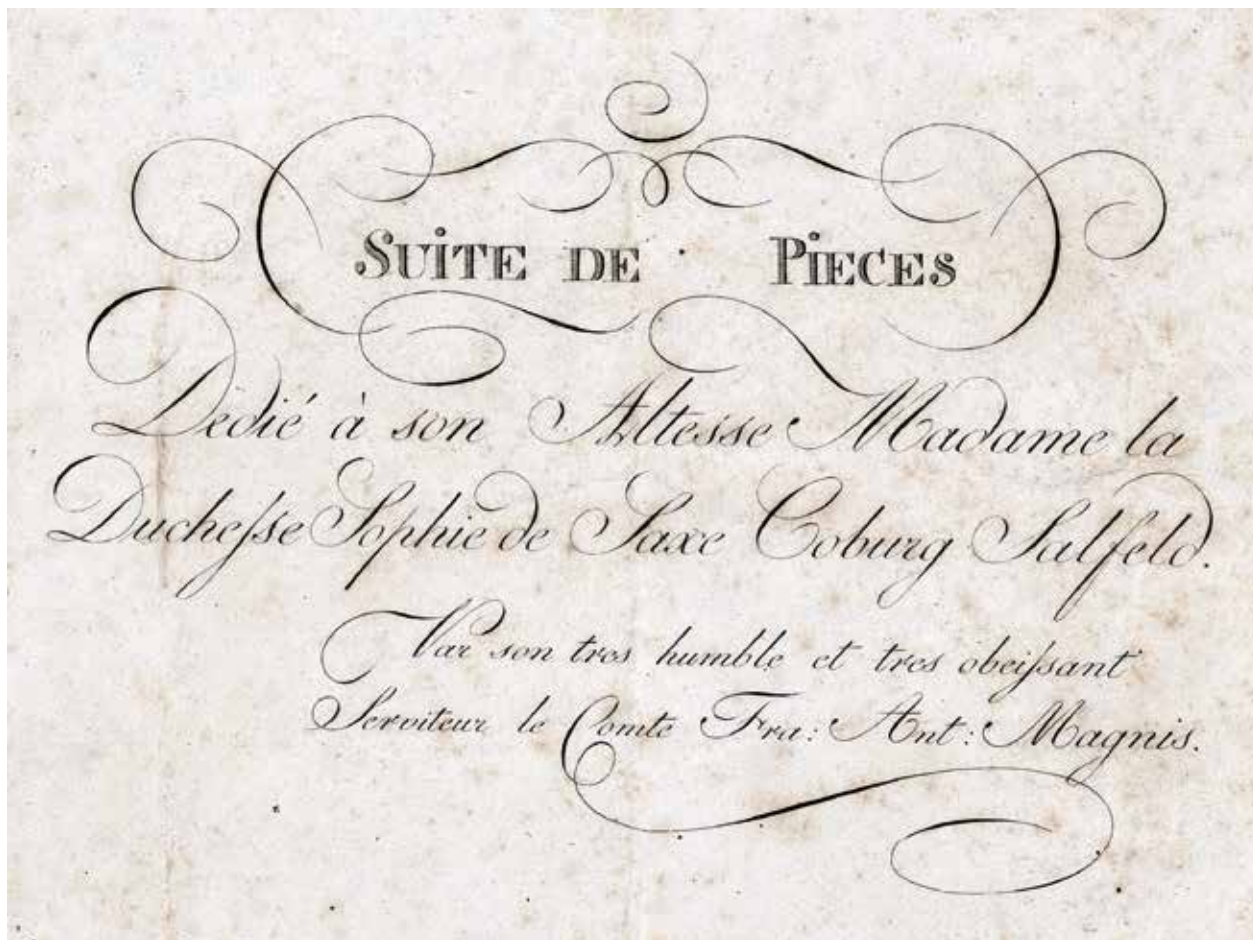 SUITE DE PIECES
Dedié à son Altesse Madame la
Duchesse Sophie de Saxe Coburg Salfeld.
Par son tres humble et tres obeissant
Serviteur le Comte Fra: Ant: Magnis.